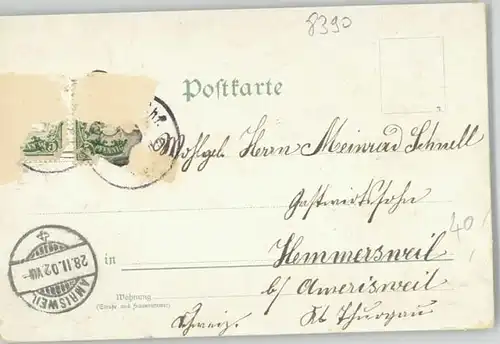 8390
Postkarte
Wohlgeb. Herrn Meinrad Schnell
Gastwirtssohn
in Hemmersweil
b/ Amerisweil
Wohnung
(Straße und Hausnummer)
Schweiz. Kt Thurgau
40
AMRISWEIL
28.II.02.VIII
5
PFENNIG